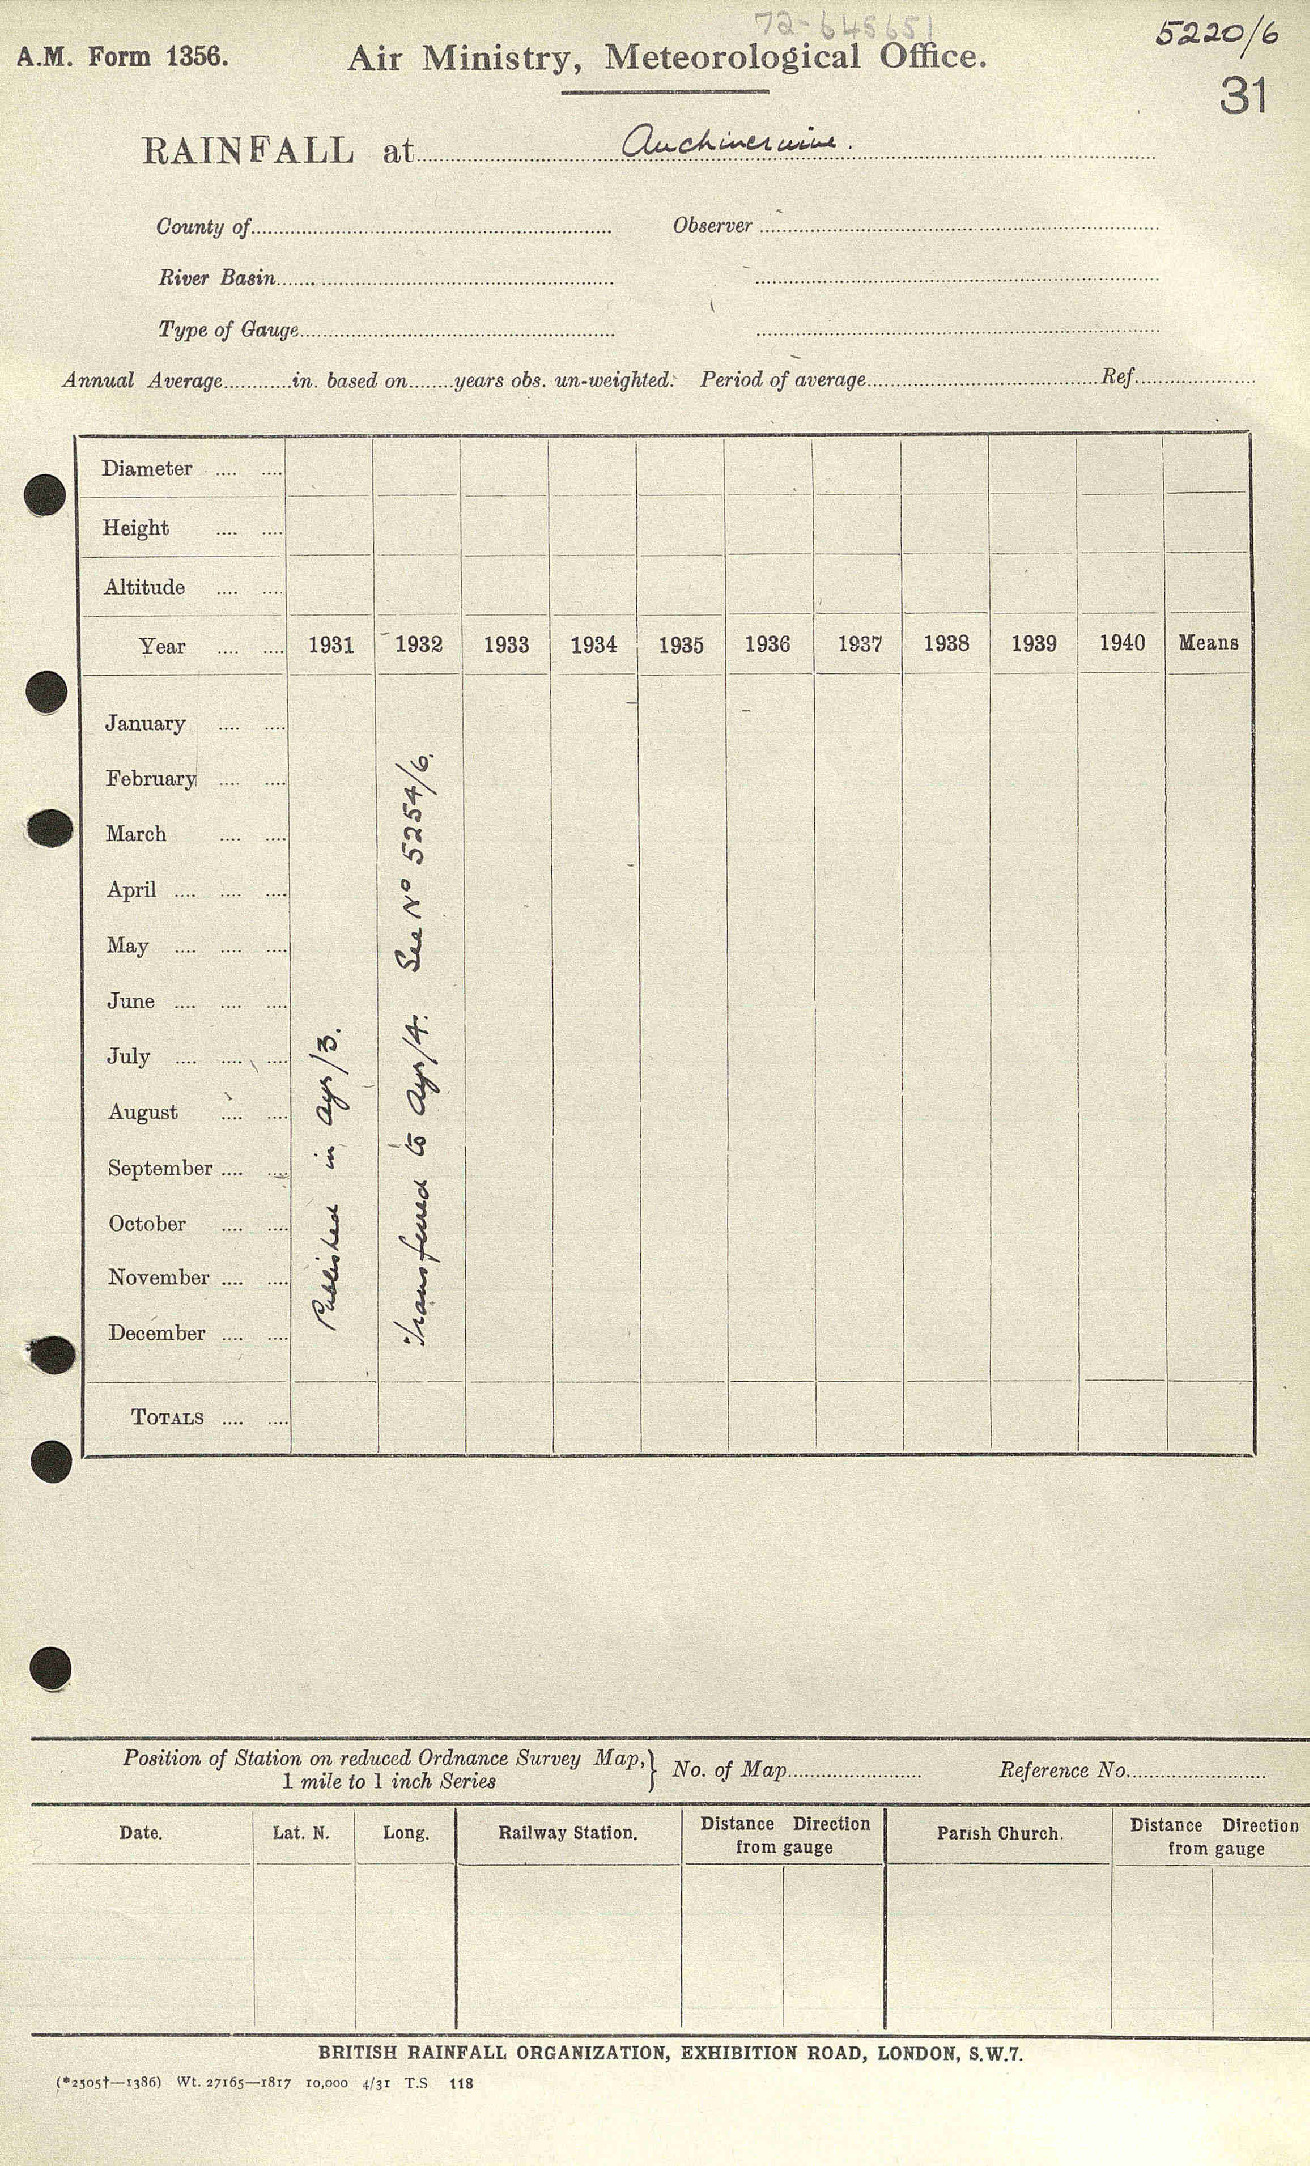 72-645651
5220/6
A.M. Form 1356.
Air Ministry, Meteorological Office.
31
RAINFALL at
County of
Observer
River Basin
Type of Gauge
Annual Average in. based on years obs. un-weighted. Period of average Ref.
Diameter
Height
Altitude
Year 1931 1932 1933 1934 1935 1936 1937 1938 1939 1940 Means
January
February
March
April
May
June
July
August
September
October
November
December
Published in Ayr/3.
Transferred to Ayr/4. See No 5254/6.
TOTALS
Position of Station on reduced Ordnance Survey Map,
1 mile to 1 inch Series
} No. of Map Reference No.
Date. Lat. N. Long. Railway Station. Distance Direction from gauge Parish Church. Distance Direction from gauge
BRITISH RAINFALL ORGANIZATION, EXHIBITION ROAD, LONDON, S.W.7.
(*2505†—1386) Wt. 27165—1817 10,000 4/31 T.S 118